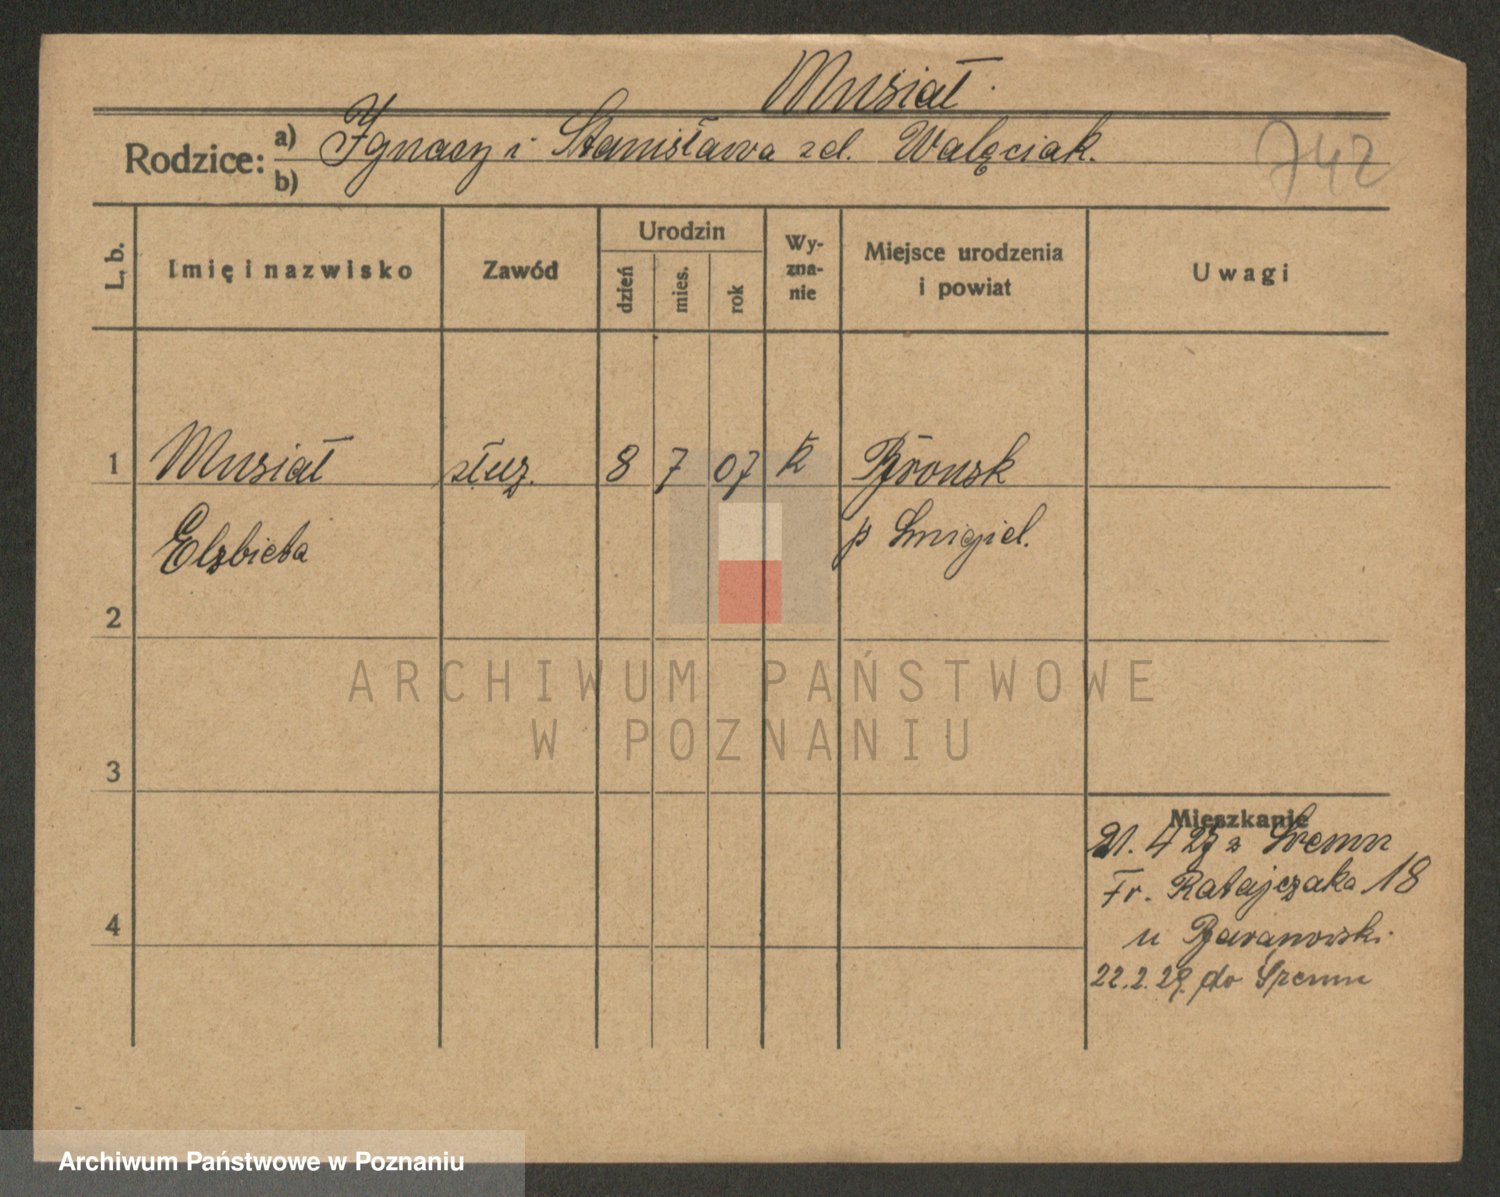 Musiał
Rodzice: a) Ignacy i Stanisława zd. Walęciak.
b)
742
L. b. Imię i nazwisko Zawód Urodzin dzień mies. rok Wy-zna-nie Miejsce urodzenia i powiat Uwagi
1 Musiał służ. 8 7 07 k Bronsk
Elżbieta p Smigiel.
2
ARCHIWUM PAŃSTWOWE
W POZNANIU
3
Mieszkanie
21. 4 27 z Śremu
Fr. Ratajczaka 18
4
u Baranowski
22.2.29. do Śremu
Archiwum Państwowe w Poznaniu